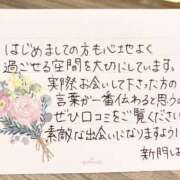 はじめましての方も心地よく
過ごせる空間を大切にしています。
実際お会いして下さった方の
言葉が一番伝わると思うの
ぜひ口コミをご覧ください
素敵な出会いになりますよう
新門は